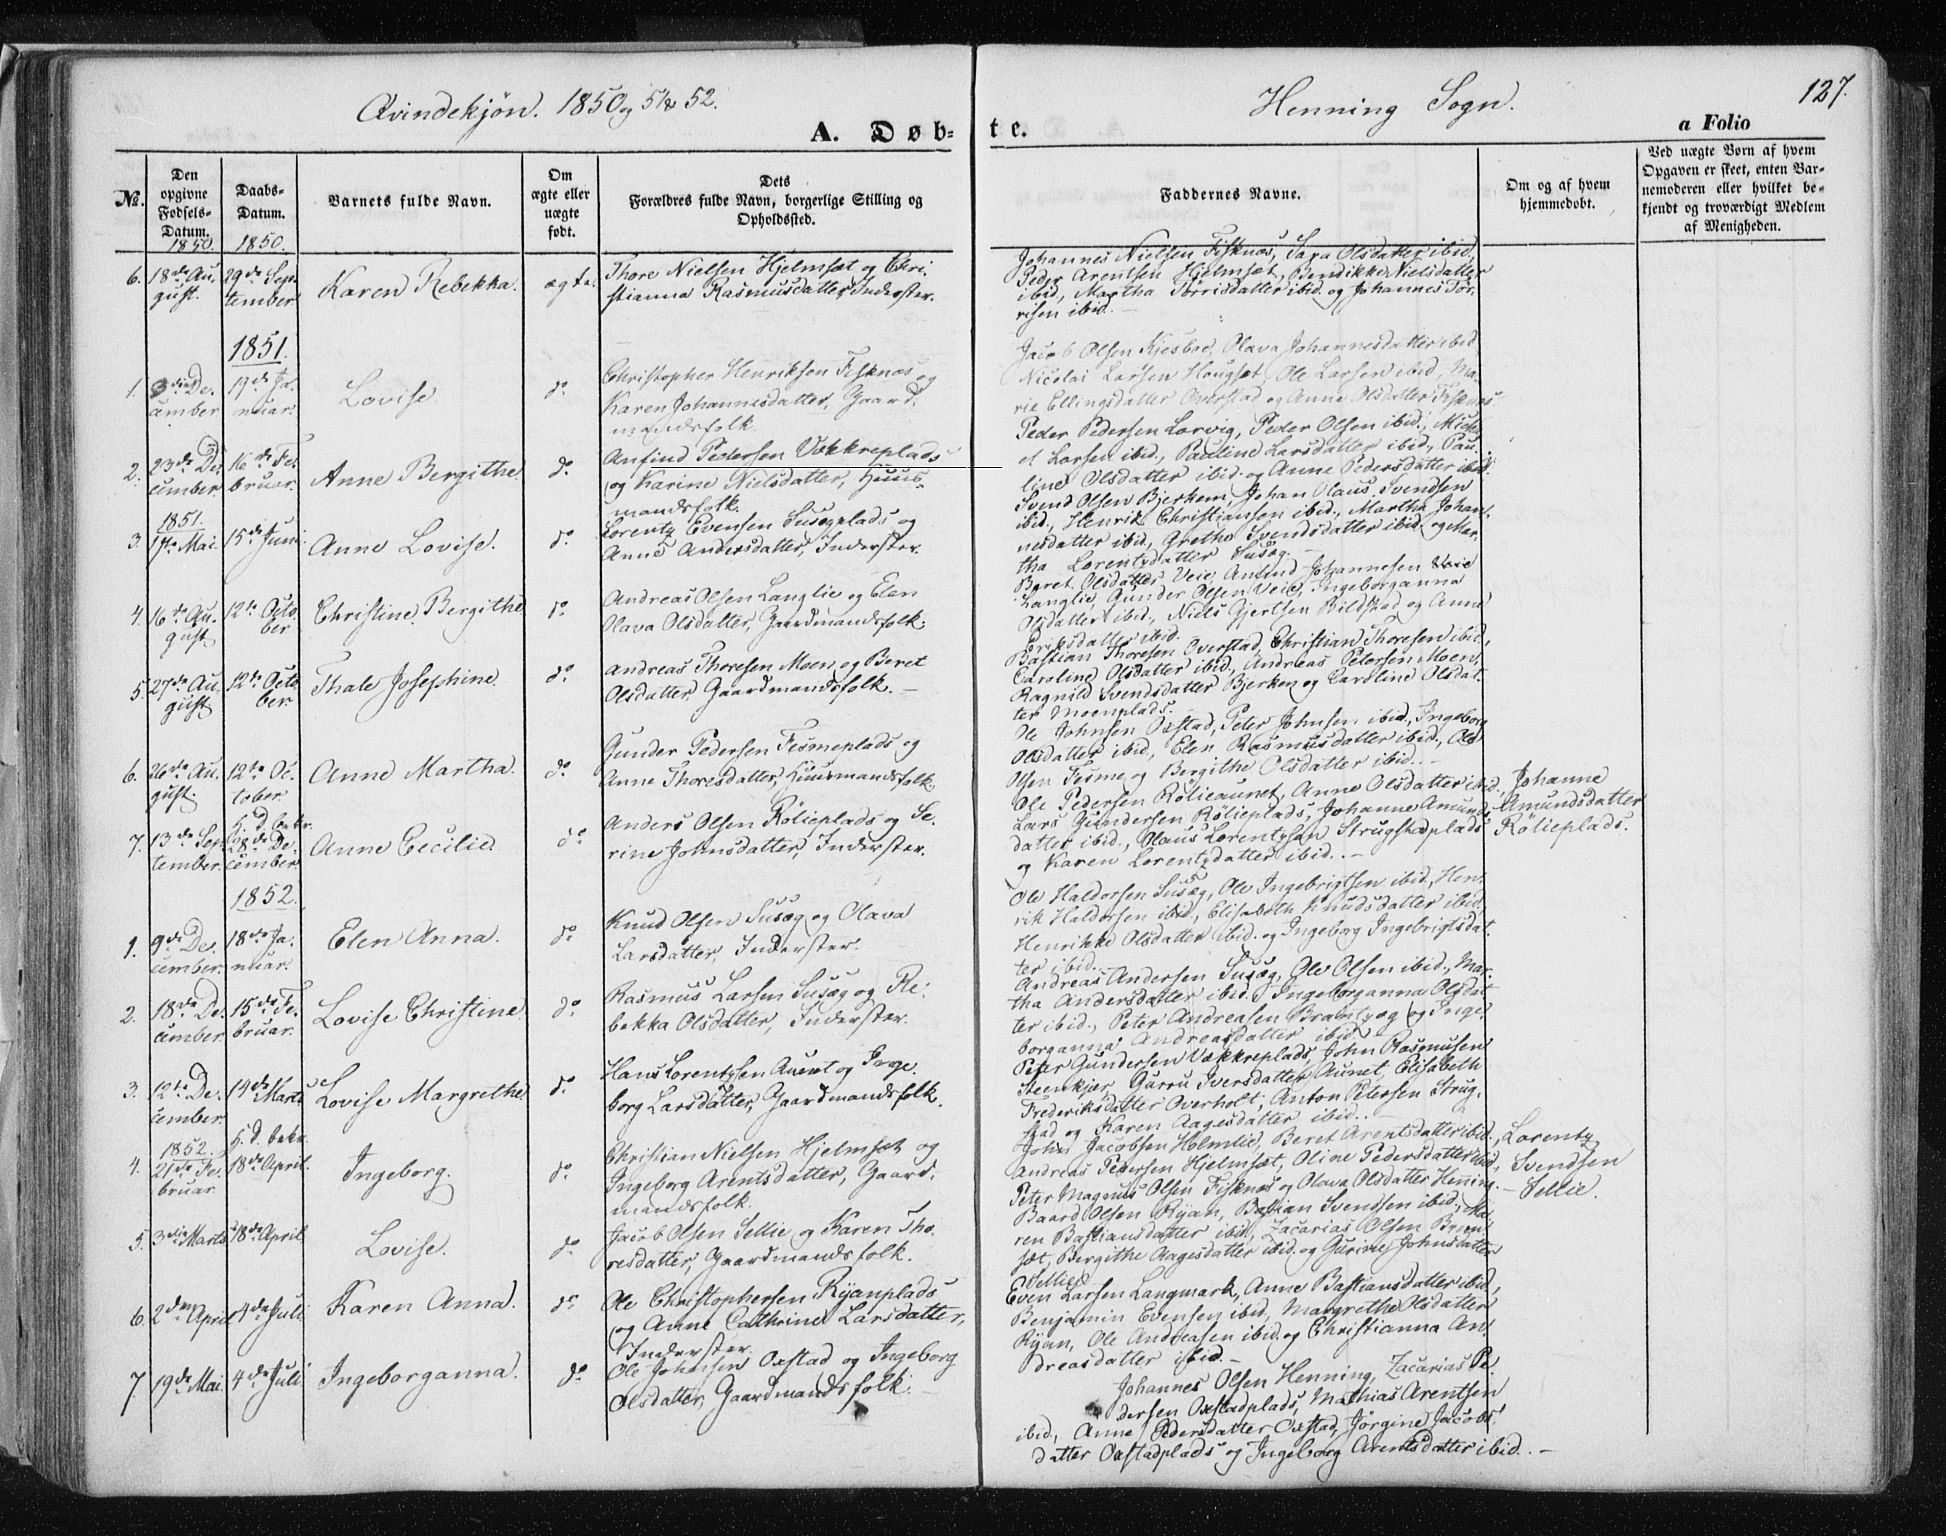 Qvindekjøn. 1850 og 51 & 52.
Henning Sogn.
127.
A. Døb-
te.
a Folio
No.
Den opgivne Fødsels-Datum.
Daabs-Datum.
Barnets fulde Navn.
Om ægte eller uægte født.
Dets Forældres fulde Navn, borgerlige Stilling og Opholdssted.
Faddernes Navne.
Om og af hvem hjemmedøbt.
Ved uægte Børn af hvem Opgaven er skeet, enten Barnemoderen eller hvilket bekjendt og troværdigt Medlem af Menigheden.
1850. 1850.
6. 18de Au- 29de Sep-
gust. tember
Karen Rebekka. ægte.
Thore Nielsen Hjelmsæt og Chri-
stianna Rasmusdatter, Inderster.
Johannes Nielsen Fisknæs, Sara Olsdatter ibid,
Peder Arentsen Hjelmsæt, Bendikke Nielsdatter
ibid, Martha Tørrisdatter ibid. og Johannes Tør-
risen ibid. -
1851.
1. De- 19de Ja-
cember nuar.
Lovise. do
Christopher Henriksen Fisknæs og
Karen Johannesdatter, Gaard-
mandsfolk.
Jacob Olsen Kjesboe, Olava Johannesdatter ibid
Nicolai Larsen Hougsæt, Ole Larsen ibid, Ma-
rie Ellingsdatter Overstad og Anne Olsdatter Fisknæs
2. 23de De- 16de Fe-
cember bruar.
Anne Bergithe. do
Anfind Pedersen Vækkreplads
og Karine Nielsdatter, Huus-
mandsfolk.
Peder Pedersen Lorvig, Peder Olsen ibid., Mich-
el Larsen ibid., Pauline Larsdatter ibid., Pau-
line Olsdatter ibid. og Anne Pedersdatter ibid.
1851.
3. 17de Mai. 15de Juni.
Anne Lovise. do
Lorentz Evensen Susægplads og
Anne Andersdatter, Inderster.
Svend Olsen Bjerkem, Johan Olaus Svendsen
ibid., Henrik Christiansen ibid., Martha Johan-
nesdatter ibid, Grethe Svendsdatter ibid. og Mar-
tha Lorentzdatter Susæg. -
4. 16de Au- 12te Octo-
gust ber
Christine Bergithe do
Andreas Olsen Langlie og Elen
Olava Olsdatter, Gaardmandsfolk.
Beret Olsdatter Veie, Johannesen
Langlie, Gunder Olsen Veie, Ingeborganna
Olsdatter ibid., Niels Gjertsen Bildstad og Anne
Eriksdatter ibid.
5. 27de Au- 12te Octo-
gust ber.
Thale Josephine. do
Andreas Thoresen Moen og Beret
Olsdatter, Gaardmandsfolk. -
Bastian Thoresen Overstad, Christian Thoresen ibid,
Caroline Olsdatter ibid., Andreas Petersen Moen,
Ragnild Svendsdatter Bjerken og Caroline Olsdat-
ter Moenplads.
6. 26de Au- 12te Oc-
gust. tober.
Anne Martha. do
Gunder Pedersen Fesmeplads og
Anne Thoresdatter, Huusmandsfolk.
Ole Johnsen Oxstad, Peter Johnsen ibid., Ingeborg
Olsdatter ibid, Elen Rasmusdatter ibid., Ole
Olsen Fesme og Bergithe Olsdatter ibid.. -
h. D. bekr.
7. 13de Sep- 18de De-
tember. cember
Anne Cecilie. do
Anders Olsen Rølieplads og Se-
rine Johnsdatter, Inderster.
Ole Pedersen Rølieaunet, Anne Olsdatter ibid,
Lars Gundersen Rølieplads, Johanne Amunds-
datter ibid., Olaus Lorentzsen Strugstadplads
og Karen Lorentzdatter ibid.. -
Johanne
Amundsdatter
Rølieplads.
1852.
1. 9de De- 18de Ja-
cember. nuar.
Elen Anna. do
Knud Olsen Susæg og Olava
Larsdatter, Inderster.
Ole Haldorsen Susæg, Ole Ingebrigtsen ibid., Hen-
rik Haldorsen ibid., Elisabeth Knudsdatter ibid.
Henrikke Olsdatter ibid. og Ingeborg Ingebrigtsdat-
ter ibid.
2. 18de De- 15de Fe-
cember. bruar.
Lovise Christine. do
Rasmus Larsen Susæg og Re-
bekka Olsdatter, Inderster.
Andreas Andersen Susæg, Ole Olsen ibid., Mar-
tha Andersdatter ibid., Ingeborganna Olsdat-
ter ibid., Peter Andreasen og Inge-
borganna Andreasdatter ibid.
3. 12te De- 14de Marts
cember.
Lovise Margrethe do
Hans Lorentzsen Aunet og Inge-
borg Larsdatter, Gaardmandsfolk.
Peter Gundersen Vækkreplads, John Rasmusen
Steenkjær, Gurru Iversdatter Aunet, Elisabeth
Frederiksdatter Overholt, Anton Petersen Strug-
stad og Karen Aagesdatter ibid.. -
1852. h. D. bekr.
4. 21de Fe- 18de April.
bruar
Ingeborg. do
Christian Nielsen Hjelmsæt og
Ingeborg Arentsdatter, Gaard-
mandsfolk.
John Jacobsen Holmlie, Beret Arentsdatter ibid.,
Andreas Pedersen Hjelmsæt, Oline Pedersdatter ibid,
Peter Magnus Olsen Fisknæs og Olava Olsdatter Henning. -
Lorentz
Svendsen
Sellie.
5. 3die Marts 18de April
Lovise. do
Jacob Olsen Sellie og Karen Tho-
resdatter, Gaardmandsfolk.
Baard Olsen Ryan, Bastian Svendsen ibid, Ma-
ren Bastiansdatter ibid., Zacarias Olsen Brem-
sæt, Bergithe Aagesdatter ibid. og Gurine Johnsdatter
Sellie.
6. 2den April 4de Juli
Karen Anna. do
Ole Christophersen Ryanplads
og Anne Cathrine Larsdatter,
Inderster.
Even Larsen Langmark, Anne Bastiansdatter ibid.,
Benjamin Evensen ibid, Margrethe Olsdatter
Ryan, Ole Andreasen ibid. og Christianna An-
dreasdatter ibid. -
7 19de Mai 4de Juli
Ingeborganna. do
Ole Johnsen Oxstad og Ingeborg
Olsdatter, Gaardmandsfolk. -
Johannes Olsen Henning, Zacarias Pe-
dersen Oxstadplads, Mathias Arentsen
ibid, Anne Pedersdatter Oxstad, Jørgine Jacobs-
datter Oxstadplads og Ingeborg Arentsdatter ibid. -